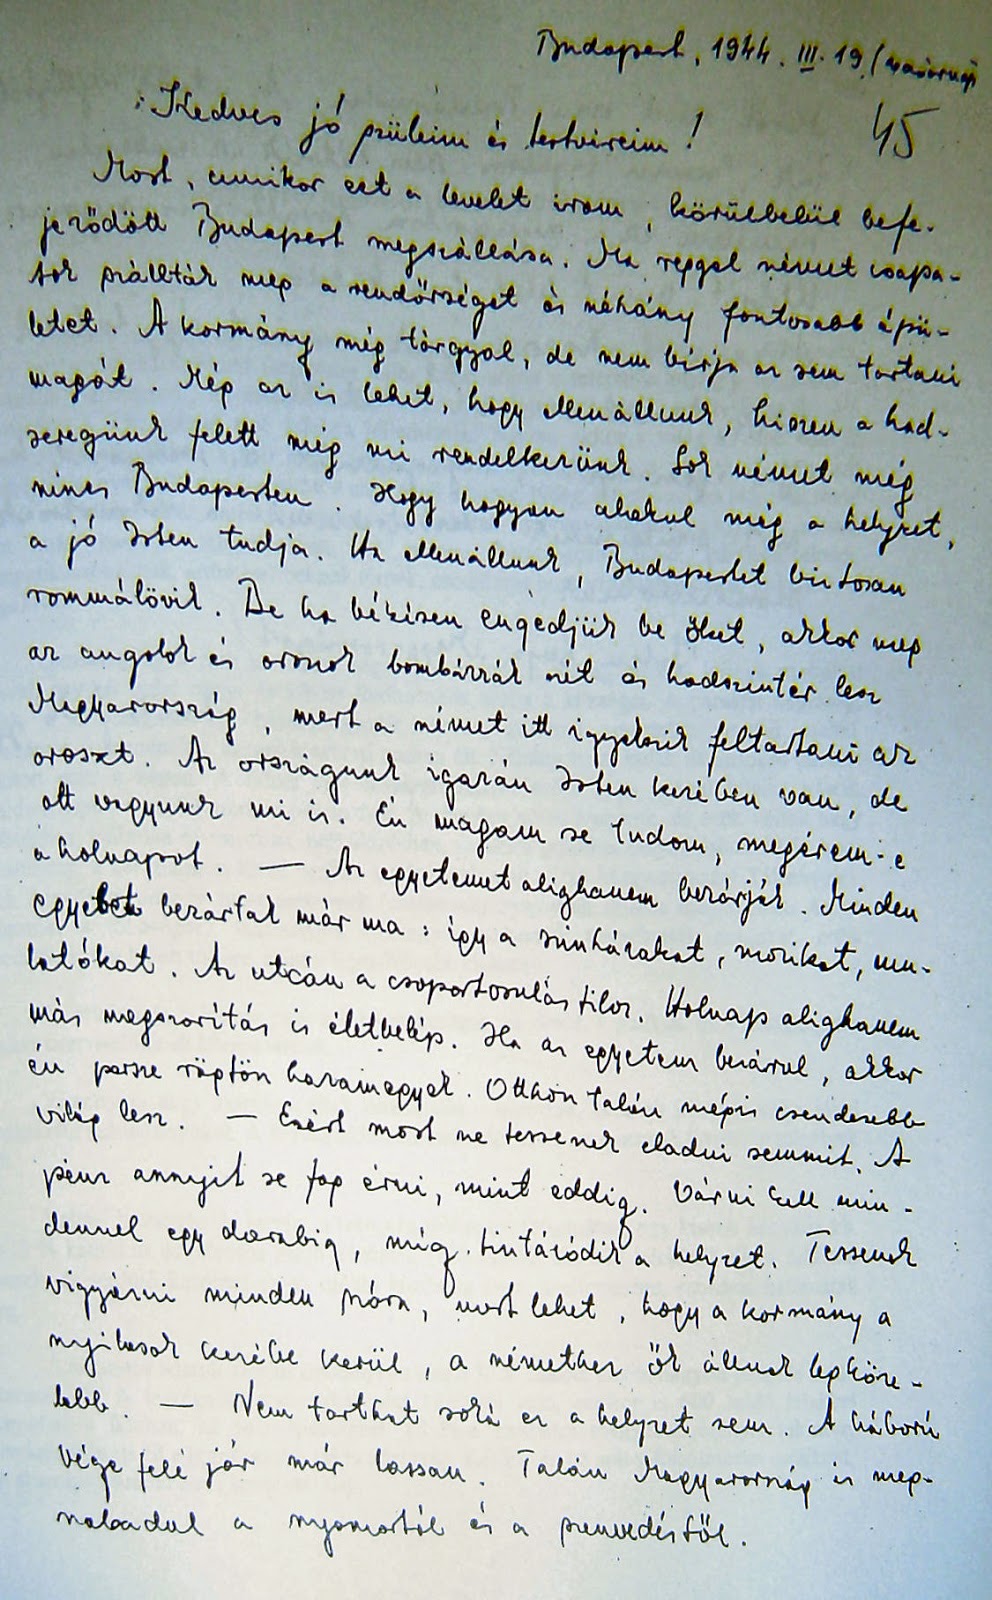 Budapest, 1944. III. 19. (vasárnap)
45
Kedves jó szüleim és testvéreim!
Most, amikor ezt a levelet irom, körülbelül befe-
jeződött Budapest megszállása. Ma reggel német csapa-
tok szállták meg a rendőrséget és néhány fontosabb épü-
letet. A kormány még tárgyal, de nem birja az sem tartani
magát. Még az is lehet, hogy ellenállunk, hiszen a had-
seregünk felett még mi rendelkezünk. Sok német még
nincs Budapesten. Hogy hogyan alakul még a helyzet,
a jó Isten tudja. Ha ellenállunk, Budapestet biztosan
rommálövik. De ha békésen engedjük be őket, akkor meg
az angolok és oroszok bombázzák szét és hadszintér lesz
Magyarország, mert a német itt igyekszik feltartani az
oroszt. Az országunk igazán Isten kezében van, de
ott vagyunk mi is. Én magam se tudom, megérem-e
a holnapot. — Az egyetemet alighanem bezárják. Minden
egyebet bezártak már ma: így a szinházakat, mozikat, mu-
latókat. Az utcán a csoportosulás tilos. Holnap alighanem
más megszorítás is életbelép. Ha az egyetem bezárul, akkor
én persze röptön hazamegyek. Otthon talán mégis csendesebb
világ lesz. — Ezért most ne tessenek eladni semmit. A
pénz annyit se fog érni, mint eddig. Várni kell min-
dennel egy darabig, míg tisztázódik a helyzet. Tessenek
vigyázni minden szóra, mert lehet, hogy a kormány a
nyilasok kezébe kerül, a némethez ők állnak legköze-
lebb. — Nem tarthat soká ez a helyzet sem. A háború
vége felé jár már lassan. Talán Magyarország is meg-
szabadul a nyomortól és a szenvedéstől.